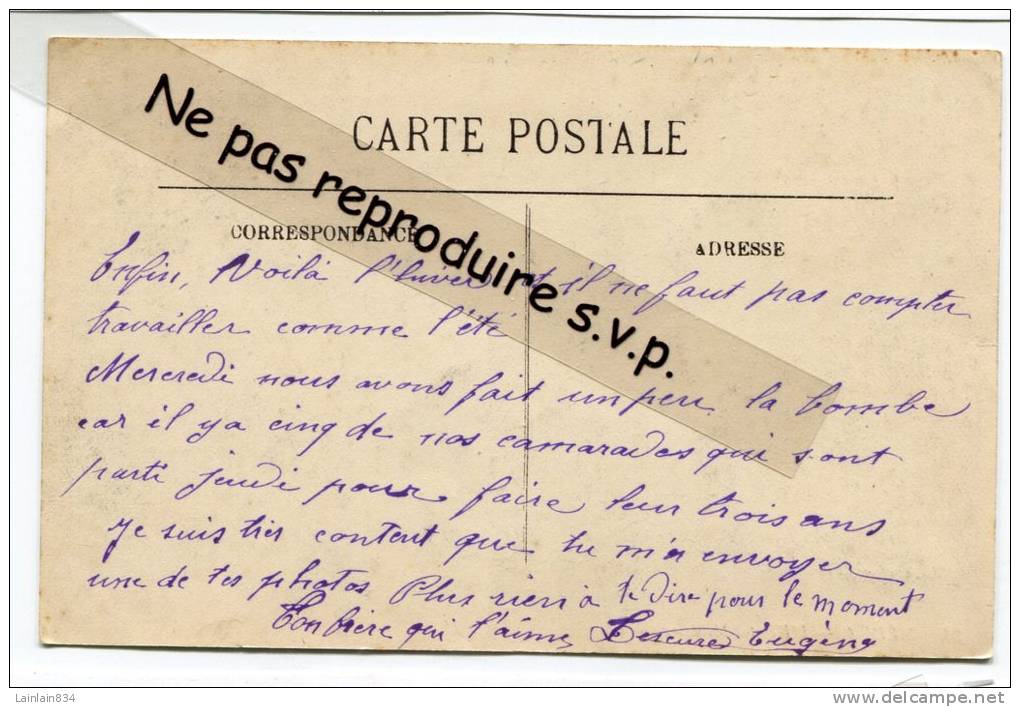 Ne pas reproduire s.v.p.
CARTE POSTALE
CORRESPONDANCE
ADRESSE
Enfin, Voilà l'hiver et il ne faut pas compter
travailler comme l'été
Mercredi nous avons fait un peu la bombe
car il y a cinq de nos camarades qui sont
parti jeudi pour faire leur trois ans
Je suis très content que tu m'a envoyer
une de tes photos Plus rien a te dire pour le moment
Ton frère qui t'aime Lescures Eugène
Lainlain834
www.delcampe.net